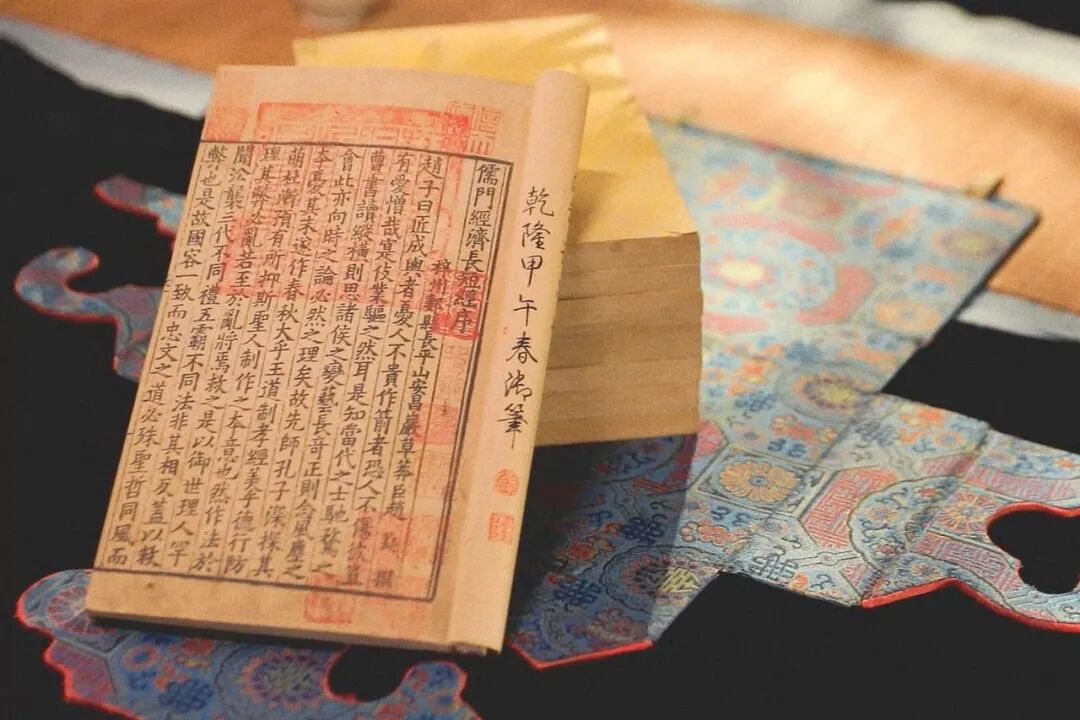 乾隆甲午春御筆
儒門經濟長短經序
梓州郪縣長平山安昌巖草莽臣趙蕤撰
趙子曰近成輿者憂人不貴作箭者恐人不傷彼豈
有愛憎哉寔伎業驅之然耳是知當代之士馳騖之
曹書讀縱橫則思諸侯之變藝長奇正則念風塵之
會此亦向時之論必然之理矣故先師孔子深探其
本憂其末遂作春秋大乎王道制孝經美乎德行防
萌杜漸預有所抑斯聖人制作之本意也然作法於
理其弊必亂若至於亂將焉救之是以御世理人罕
聞沿襲三代不同禮五霸不同法非其相反蓋以救
弊也是故國容一致而忠文之道必殊聖哲同風而